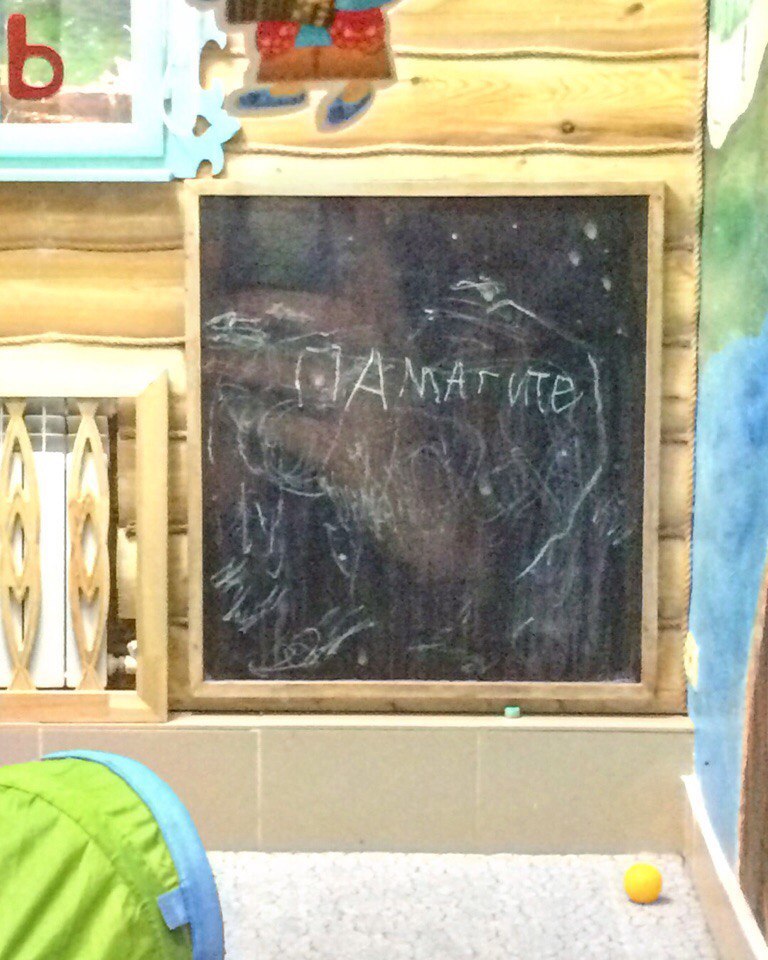 ь
ПАМАГИТЕ